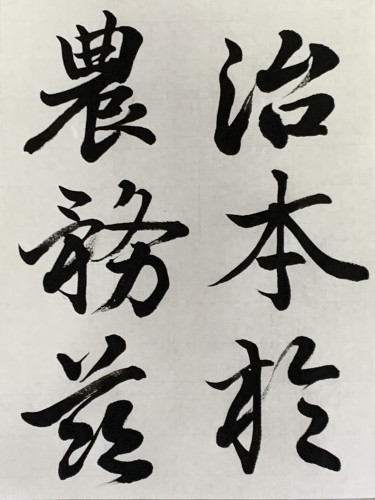 治本於
農務茲